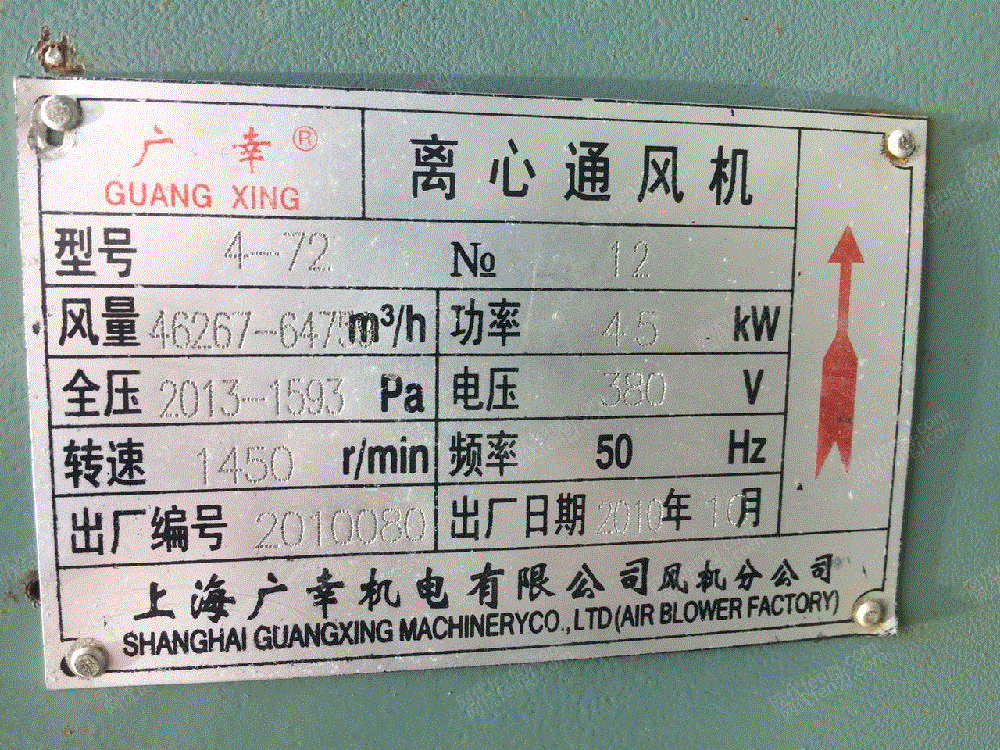 广幸®
GUANG XING
离心通风机
型号 4-72 № 12
风量 46267-647 m³/h 功率 45 kW
全压 2013-1593 Pa 电压 380 V
转速 1450 r/min 频率 50 Hz
出厂编号 2010080 出厂日期 2010年10月
上海广幸机电有限公司风机分公司
SHANGHAI GUANGXING MACHINERYCO.,LTD(AIR BLOWER FACTORY)